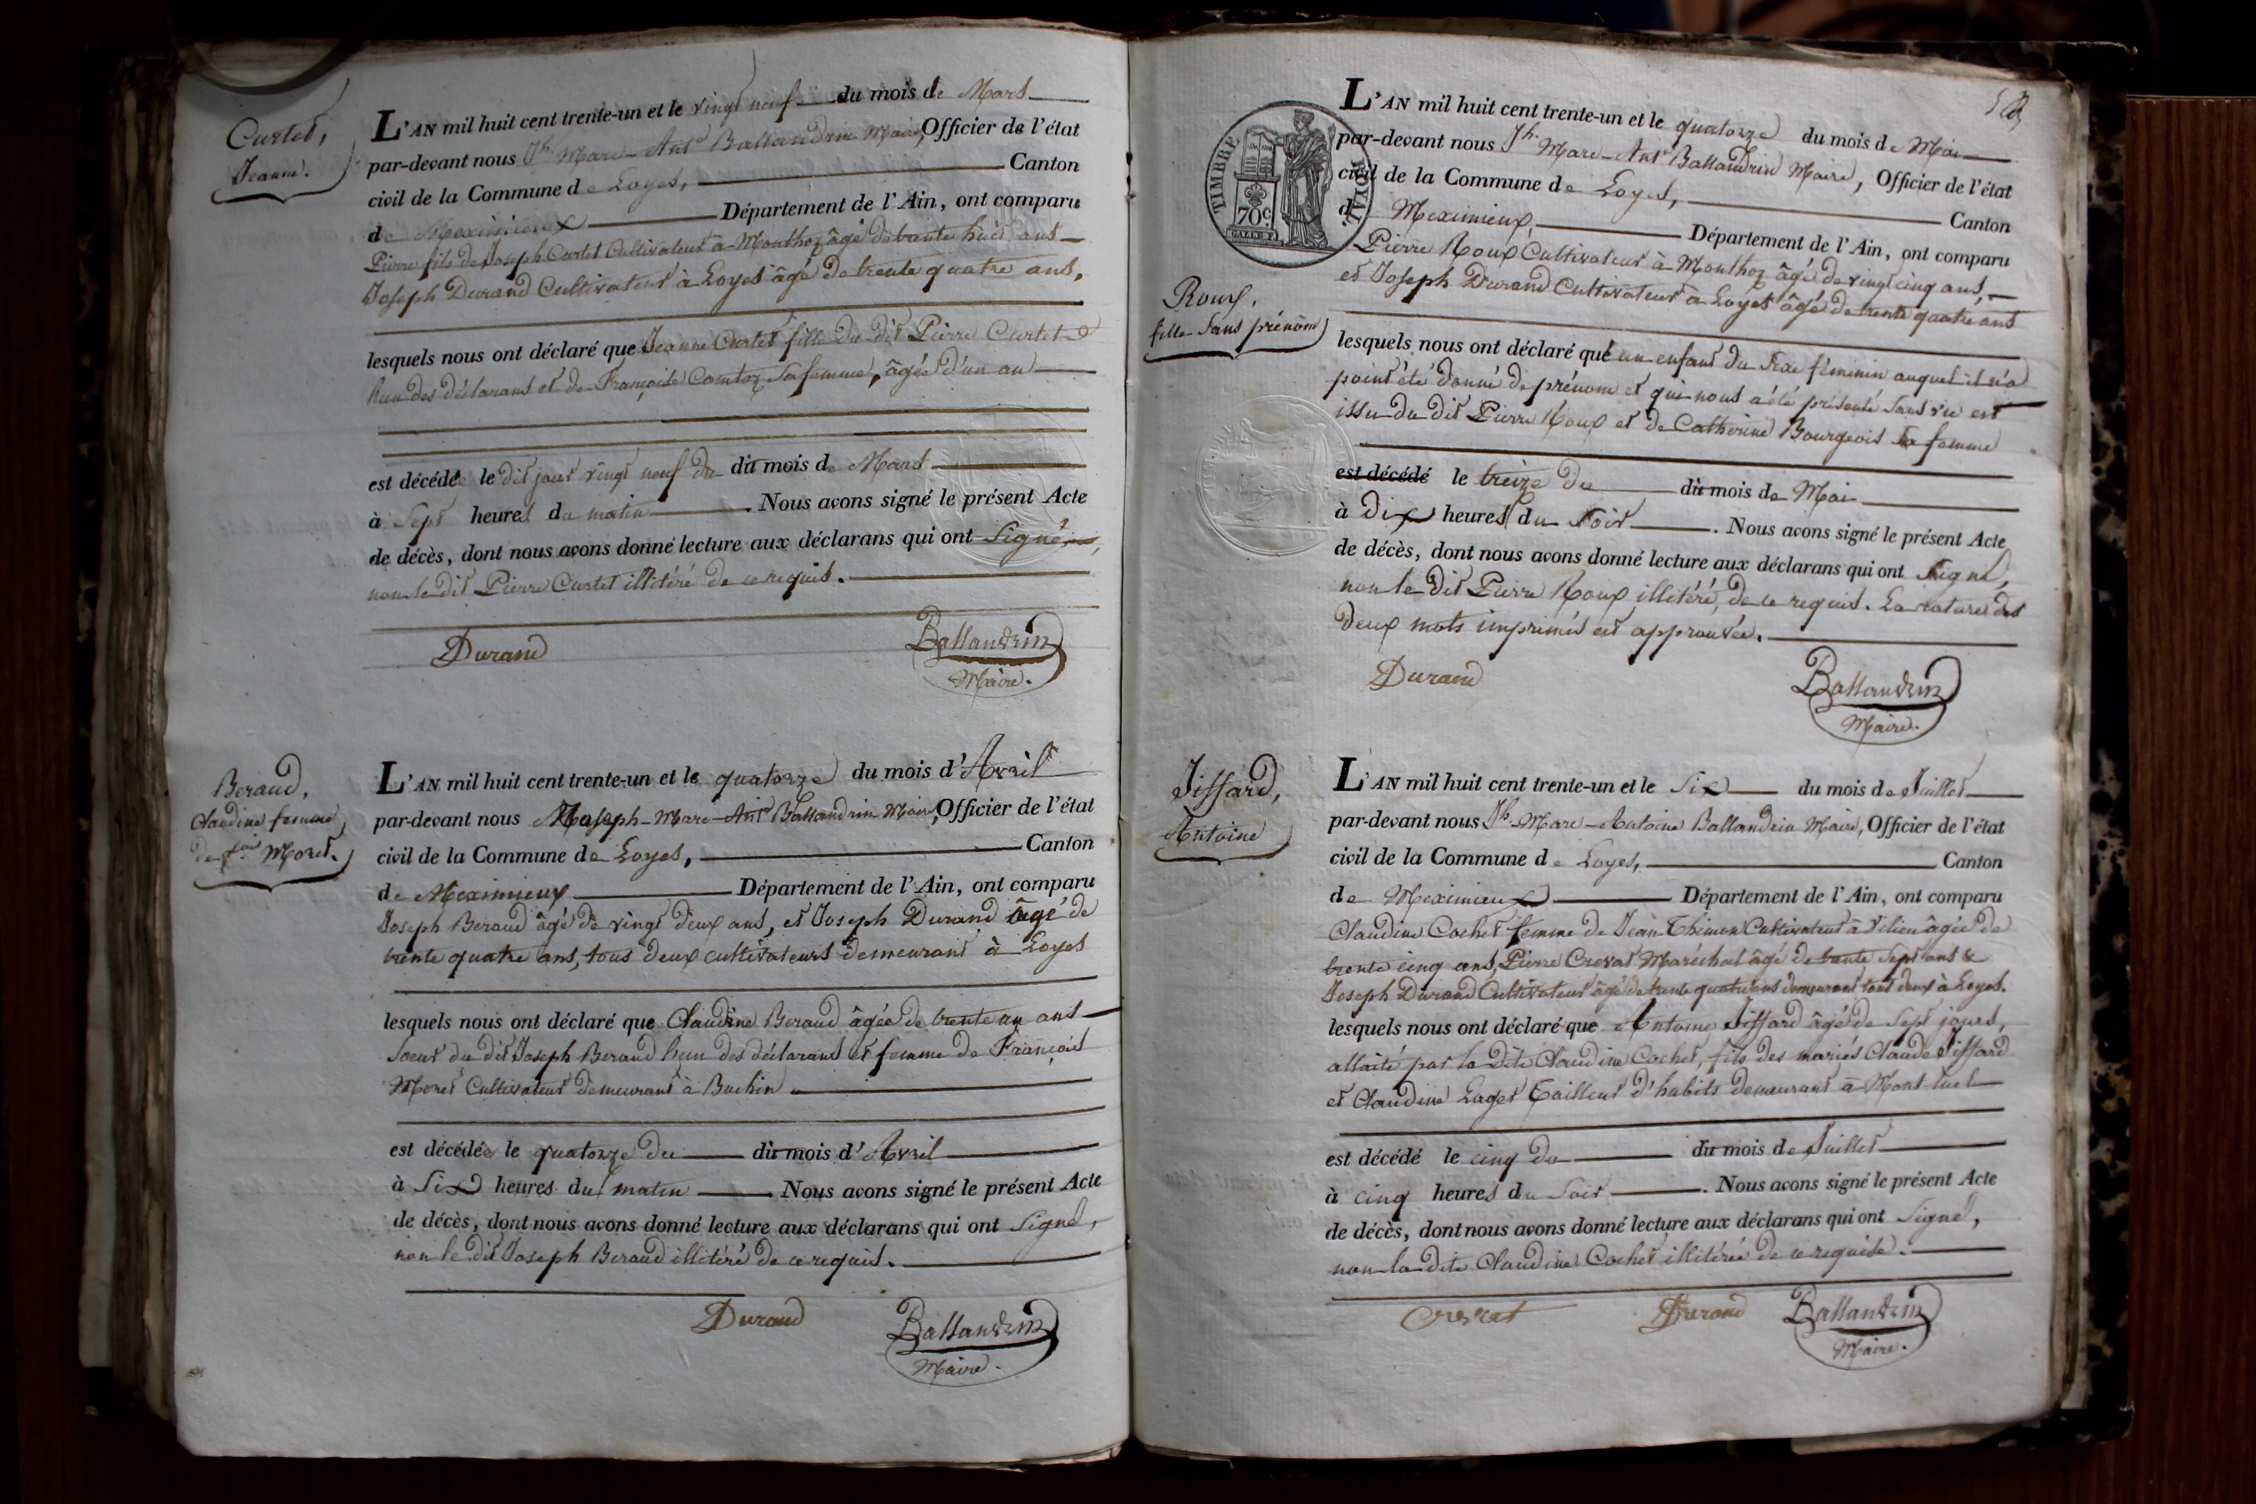 Curtet,
Jeanne.
L'AN mil huit cent trente-un et le vingt neuf du mois de Mars
par-devant nous Jh Marc-Ant.e Ballandrin Maire, Officier de l'état
civil de la Commune de Loyes, Canton
de Meximieux Département de l'Ain, ont comparu
Pierre fils de Joseph Curtet Cultivateur à Monthoz âgé de trente huit ans
Joseph Durand Cultivateur à Loyes âgé de trente quatre ans,
lesquels nous ont déclaré que Jeanne Curtet fille du dit Pierre Curtet
l'un des déclarans et de Françoise Comtoz sa femme, âgée d'un an
est décédée le dit jour vingt neuf du dit mois de Mars
à Sept heures du matin. Nous avons signé le présent Acte
de décès, dont nous avons donné lecture aux déclarans qui ont Signé,
non le dit Pierre Curtet illitéré de ce requis.
Durand Ballandrin
Maire.
Beraud,
Claudine femme
de f.çois Moret.
L'AN mil huit cent trente-un et le quatorze du mois d'Avril
par-devant nous Joseph-Marc-Ant.e Ballandrin Maire, Officier de l'état
civil de la Commune de Loyes, Canton
de Meximieux Département de l'Ain, ont comparu
Joseph Beraud âgé de vingt deux ans, et Joseph Durand âgé de
trente quatre ans, tous deux cultivateurs demeurant à Loyes
lesquels nous ont déclaré que Claudine Beraud âgée de trente un ans
Soeur du dit Joseph Beraud l'un des déclarans et femme de François
Moret Cultivateur demeurant à Buchin
est décédée le quatorze du dit mois d'Avril
à Six heures du matin. Nous avons signé le présent Acte
de décès, dont nous avons donné lecture aux déclarans qui ont Signé,
non le dit Joseph Beraud illitéré de ce requis.
Durand Ballandrin
Maire.
TIMBRE ROYAL
70c.
Roux,
fille Sans prénom
L'AN mil huit cent trente-un et le quatorze du mois de Mai
par-devant nous Jh. Marc-Ant.e Ballandrin Maire, Officier de l'état
civil de la Commune de Loyes, Canton
de Meximieux, Département de l'Ain, ont comparu
Pierre Roux Cultivateur à Monthoz âgé de vingt cinq ans,
et Joseph Durand Cultivateur à Loyes âgé de trente quatre ans
lesquels nous ont déclaré qu'un enfant du Sexe féminin auquel il n'a
point été donné de prénom et qui nous a été présenté Sans vie est
issu du dit Pierre Roux et de Catherine Bourgeois Sa femme
est décédé le treize du dit mois de Mai
à Dix heures du Soir. Nous avons signé le présent Acte
de décès, dont nous avons donné lecture aux déclarans qui ont Signé,
non le dit Pierre Roux illitéré, de ce requis. La rature des
deux mots imprimés est approuvée.
Durand Ballandrin
Maire.
Jiffard,
Antoine
L'AN mil huit cent trente-un et le Six du mois de Juillet
par-devant nous Jh-Marc-Antoine Ballandrin Maire, Officier de l'état
civil de la Commune de Loyes, Canton
de Meximieux Département de l'Ain, ont comparu
Claudine Cochet femme de Jean Thimon Cultivateur à Vilieu âgée de
trente cinq ans, Pierre Crevat Maréchal âgé de trente Sept ans &
Joseph Durand Cultivateur âgé de trente quatre ans demeurant tous deux à Loyes.
lesquels nous ont déclaré que Antoine Jiffard âgé de Sept jours,
allaité par la dite Claudine Cochet, fils des mariés Claude Jiffard
et Claudine Laget Tailleur d'habits demeurant à Mont luel
est décédé le cinq du dit mois de Juillet
à cinq heures du Soir. Nous avons signé le présent Acte
de décès, dont nous avons donné lecture aux déclarans qui ont Signé,
non la dite Claudine Cochet illitérée de ce requise.
Crevat Durand Ballandrin
Maire.